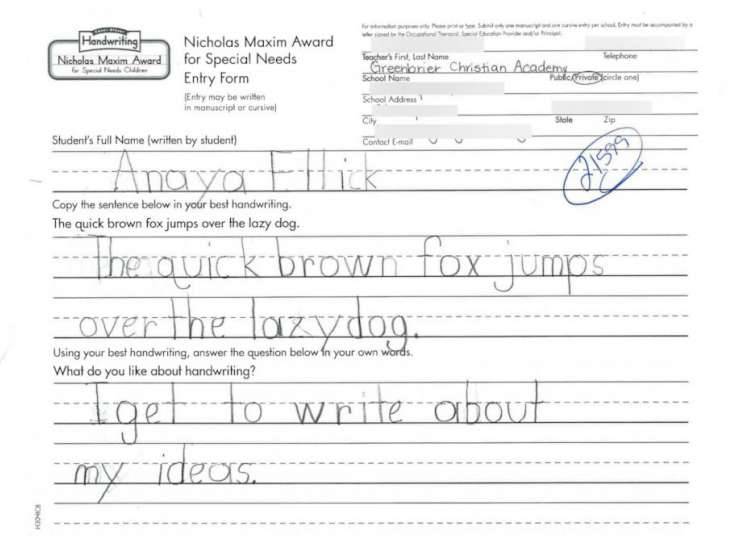 Zaner-Bloser
Handwriting
Nicholas Maxim Award
for Special Needs Children
Nicholas Maxim Award
for Special Needs
Entry Form
(Entry may be written
in manuscript or cursive)
For information purposes only. Please print or type. Submit only one manuscript and one cursive entry per school. Entry must be accompanied by a
letter signed by the Occupational Therapist, Special Education Provider and/or Principal.
Teacher's First, Last Name Telephone
Greenbrier Christian Academy
School Name Public/Private (circle one)
School Address
City State Zip
Contact E-mail
21599
Student's Full Name (written by student)
Anaya Ellick
Copy the sentence below in your best handwriting.
The quick brown fox jumps over the lazy dog.
The quick brown fox jumps
over the lazy dog.
Using your best handwriting, answer the question below in your own words.
What do you like about handwriting?
I get to write about
my ideas.